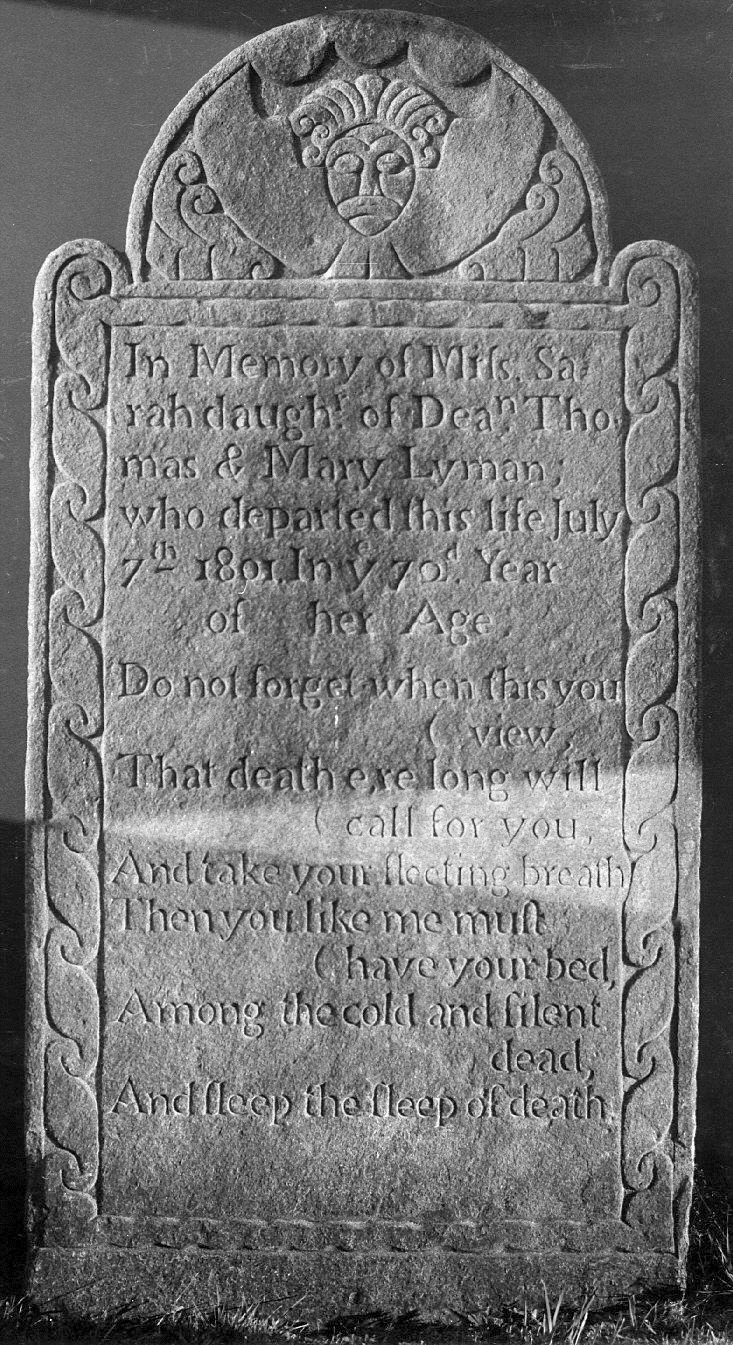 In Memory of Miſs. Sa-
rah daughʳ. of Deaⁿ. Tho
mas & Mary Lyman;
who departed this life July
7ᵗʰ 1801. In yᵉ 70ᵈ. Year
of her Age
Do not forget when this you
( view,
That death e,re long will
( call for you,
And take your fleeting breath
Then you like me muſt
( have your bed,
Among the cold and ſilent
dead,
And ſleep the ſleep of death.